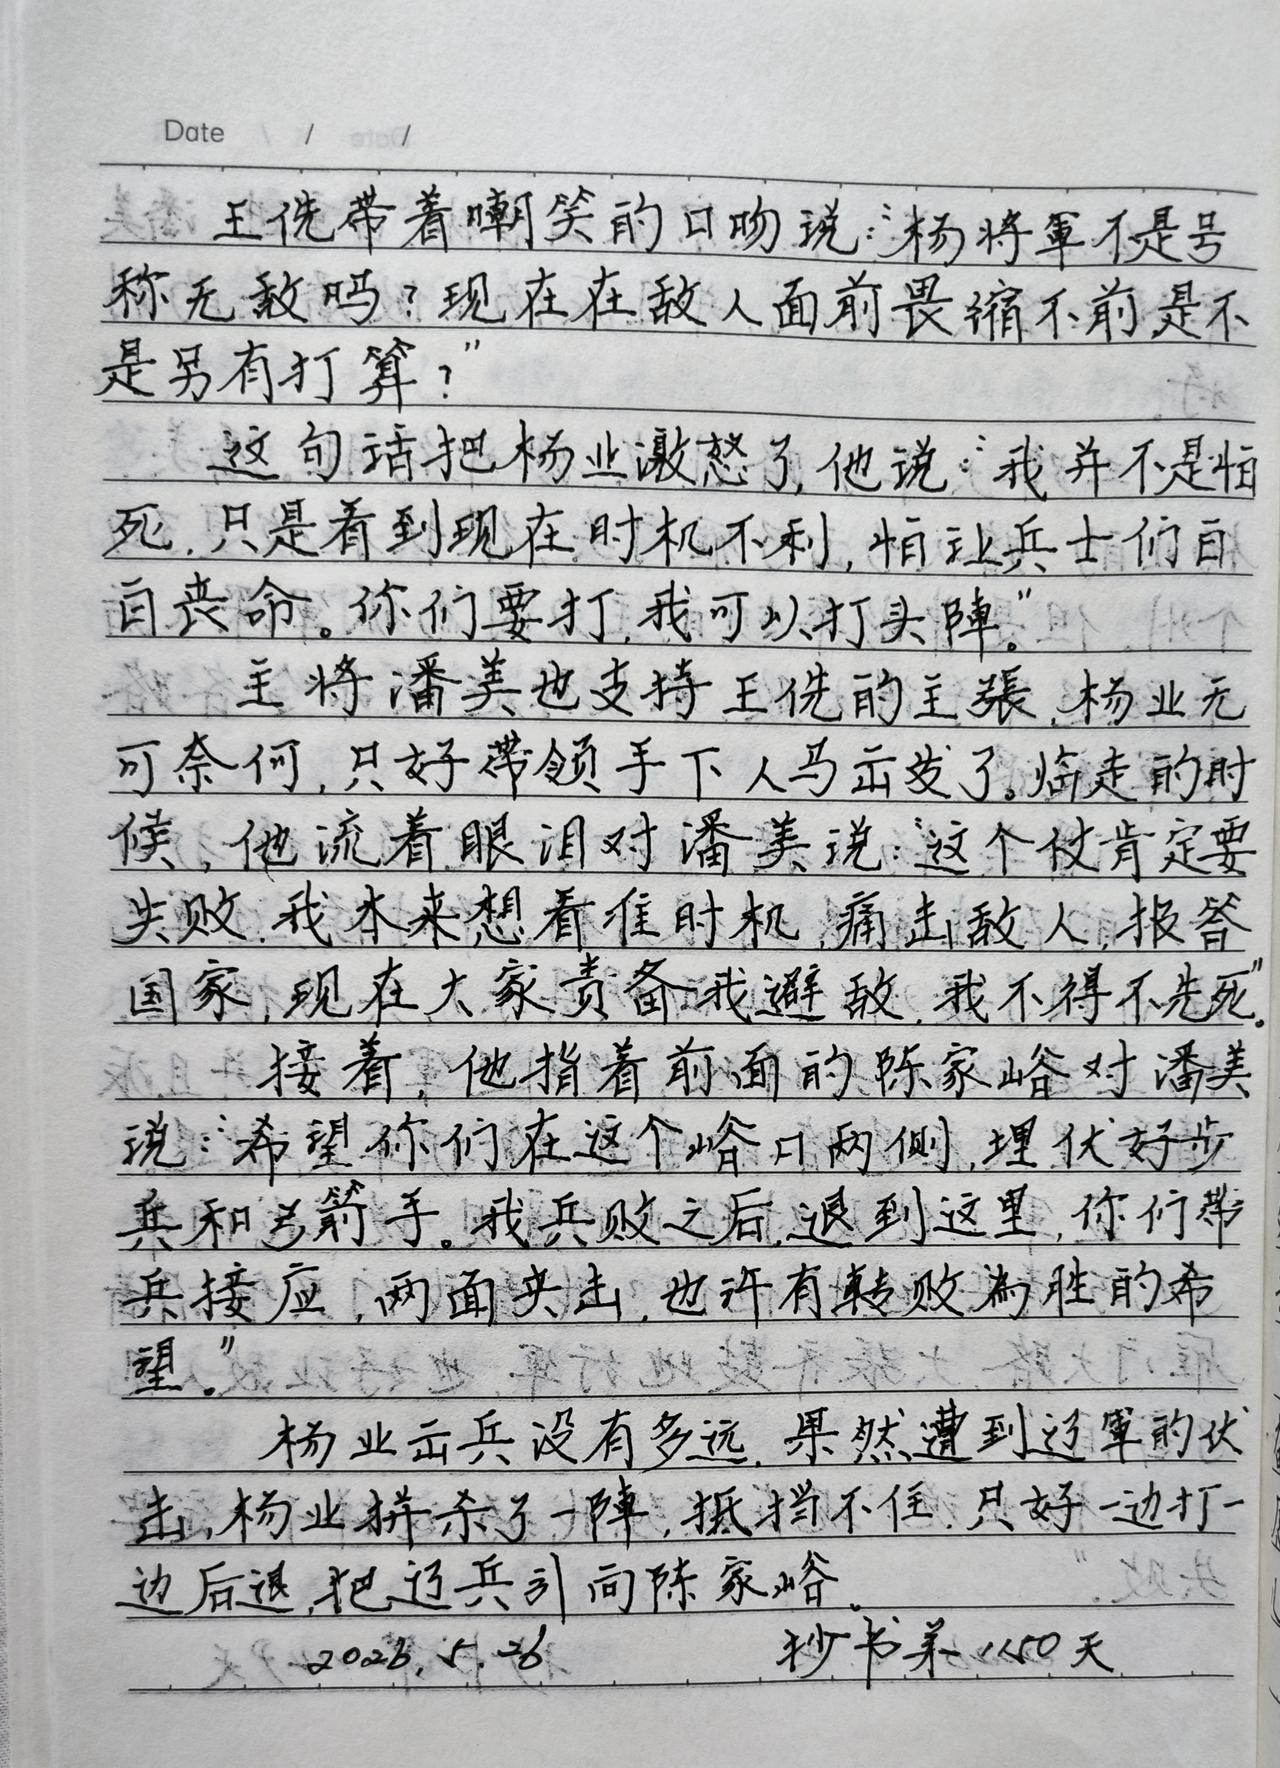 Date / /
王侁带着嘲笑的口吻说：“杨将軍不是号
称无敌吗？现在在敌人面前畏缩不前是不
是另有打算？”
这句话把杨业激怒了，他说：“我并不是怕
死，只是看到现在时机不利，怕让兵士们白
白丧命。你们要打，我可以打头陣。”
主将潘美也支持王侁的主張，杨业无
可奈何，只好带领手下人马出发了。临走的时
候，他流着眼泪对潘美说：“这个仗肯定要
失败，我本来想看准时机，痛击敌人，报答
国家，现在大家责备我避敌，我不得不先死”。
接着，他指着前面的陈家峪对潘美
说：“希望你们在这个峪口两侧，埋伏好步
兵和弓箭手。我兵败之后，退到这里，你们带
兵接应，两面夹击，也许有転败為胜的希
望。”
杨业出兵没有多远，果然遭到辽軍的伏
击，杨业拼杀了一陣，抵挡不住，只好一边打一
边后退，把辽兵引向陈家峪。
2026.5.26 抄书第1150天